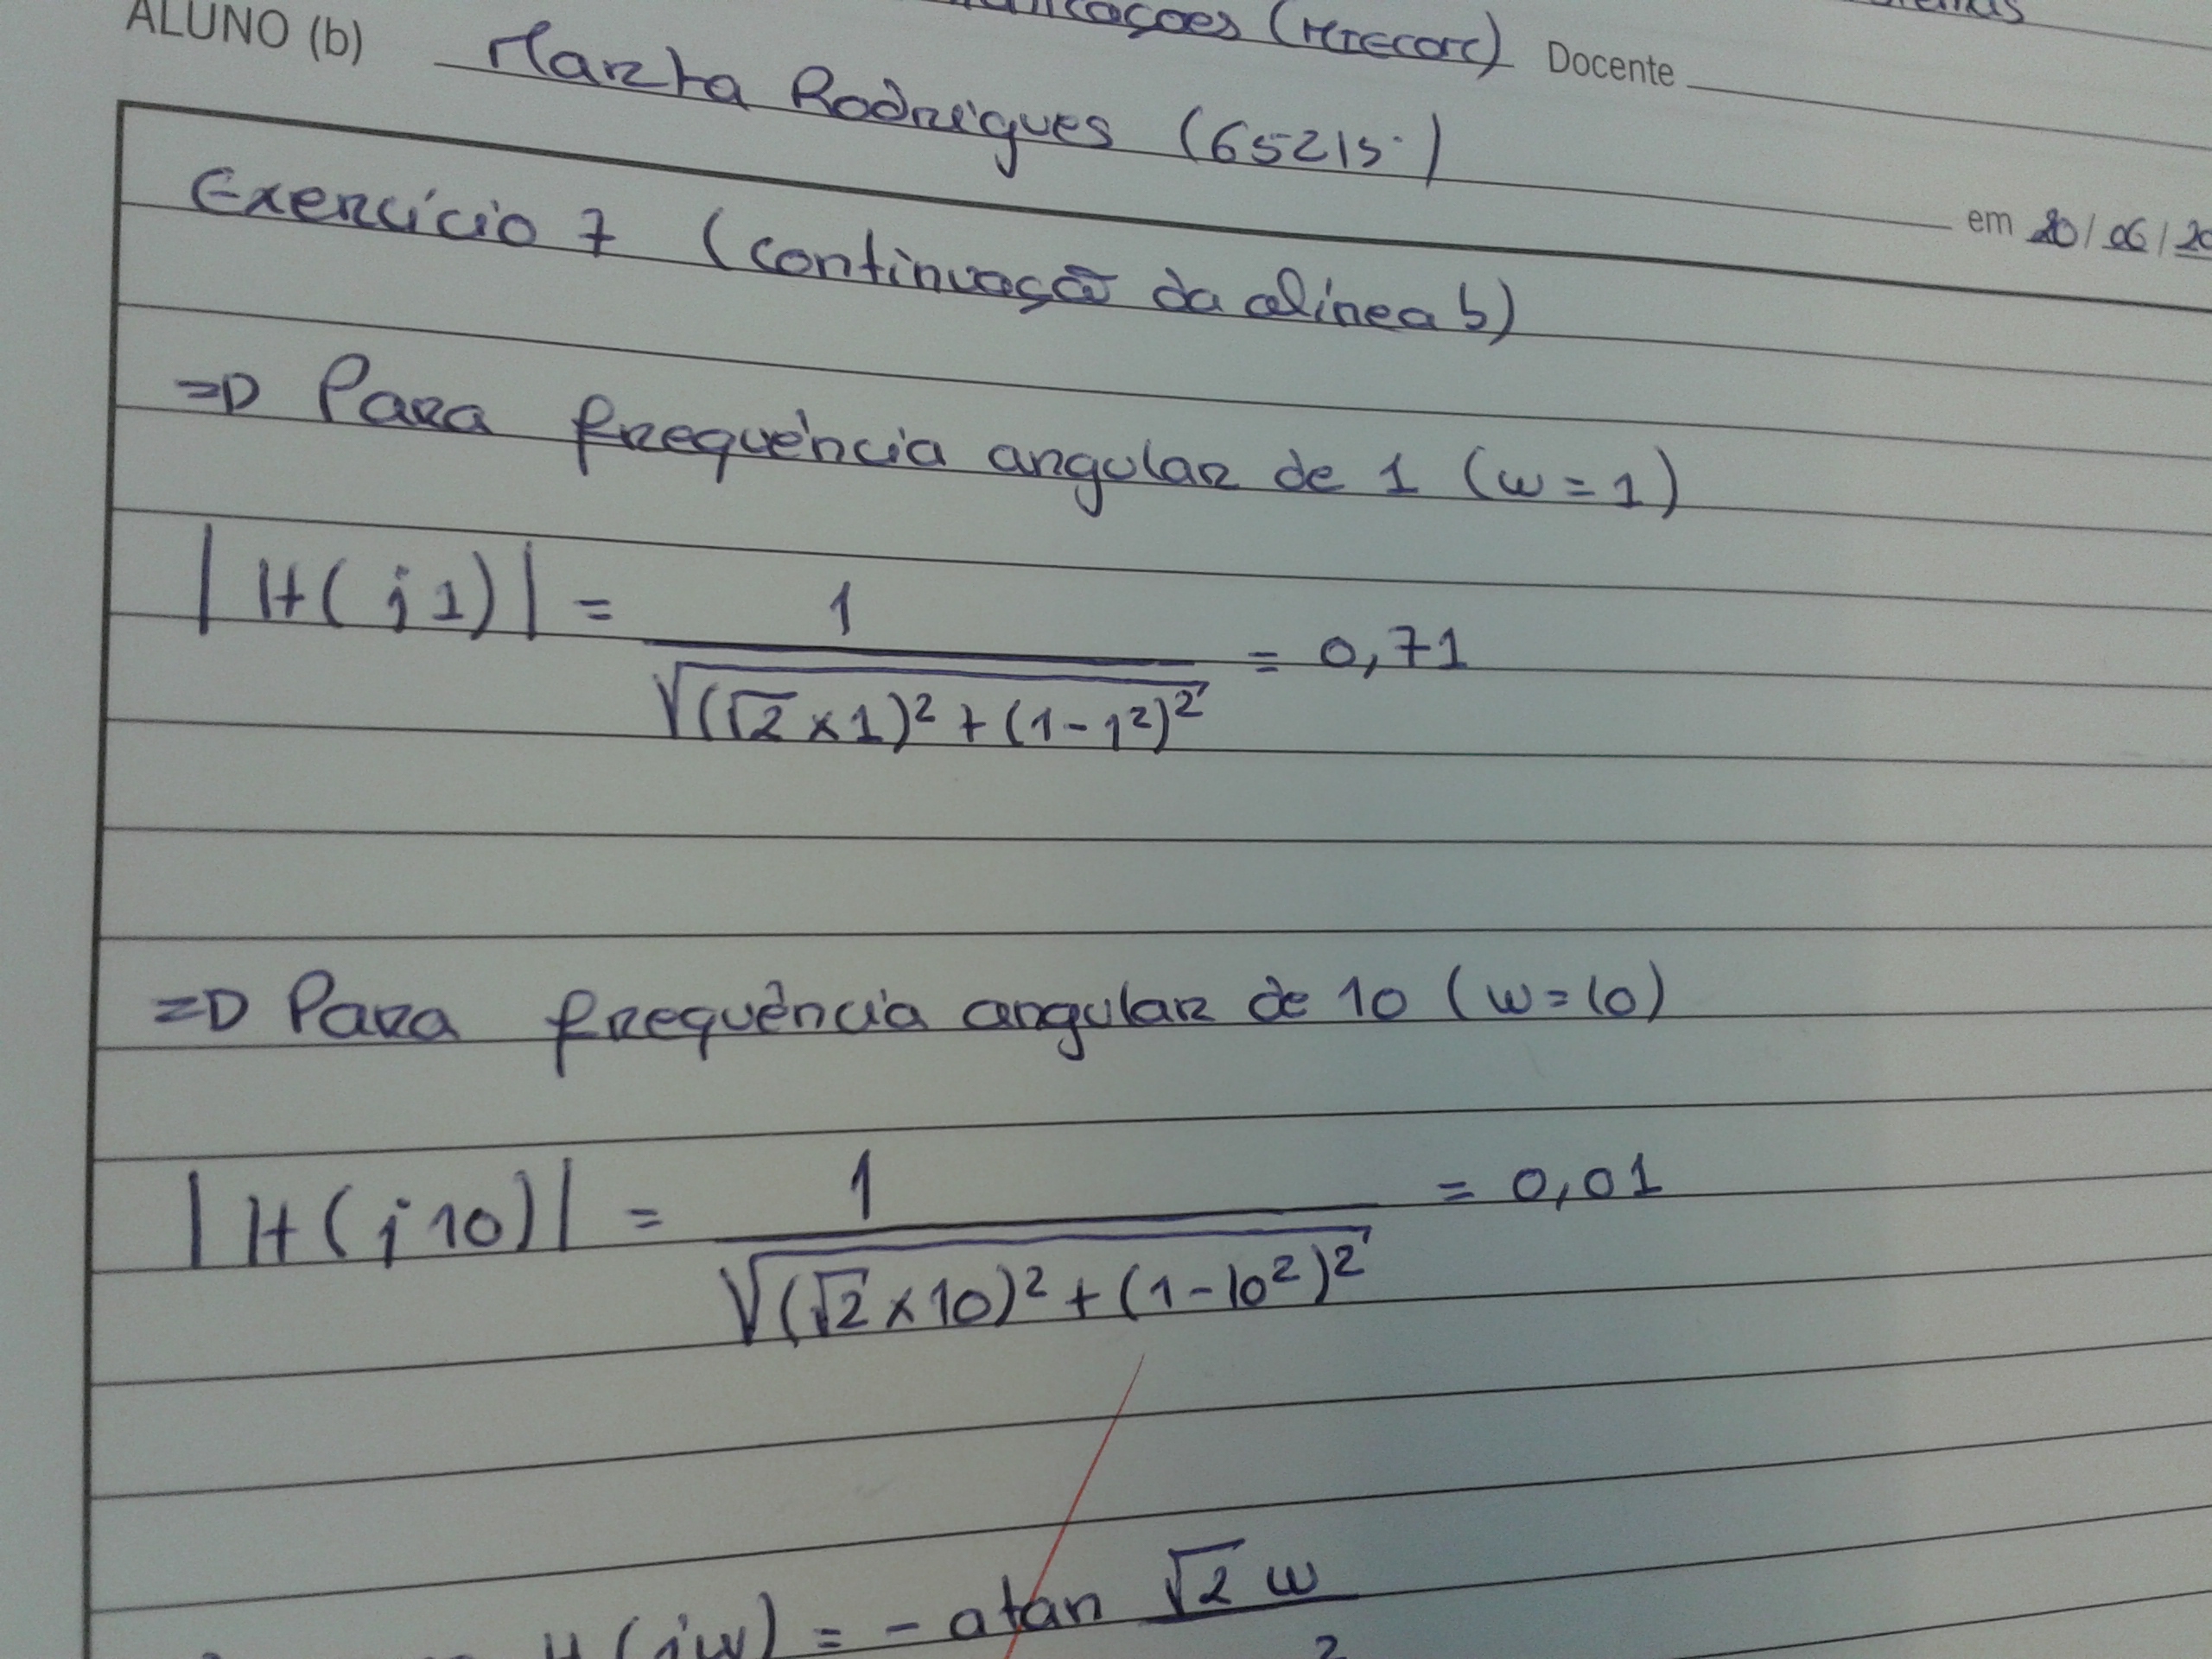 (MTecorc) Docente
ALUNO (b) Marta Rodrigues (65215.)
em 20/06/20
Exercício 7 (continuação da alínea b)
=D Para frequência angular de 1 (w = 1)
|H(j1)| = 1 / √((√2 × 1)² + (1 - 1²)²) = 0,71
=D Para frequência angular de 10 (w = 10)
|H(j10)| = 1 / √((√2 × 10)² + (1 - 10²)²) = 0,01
H(jw) = - atan √2 w
2